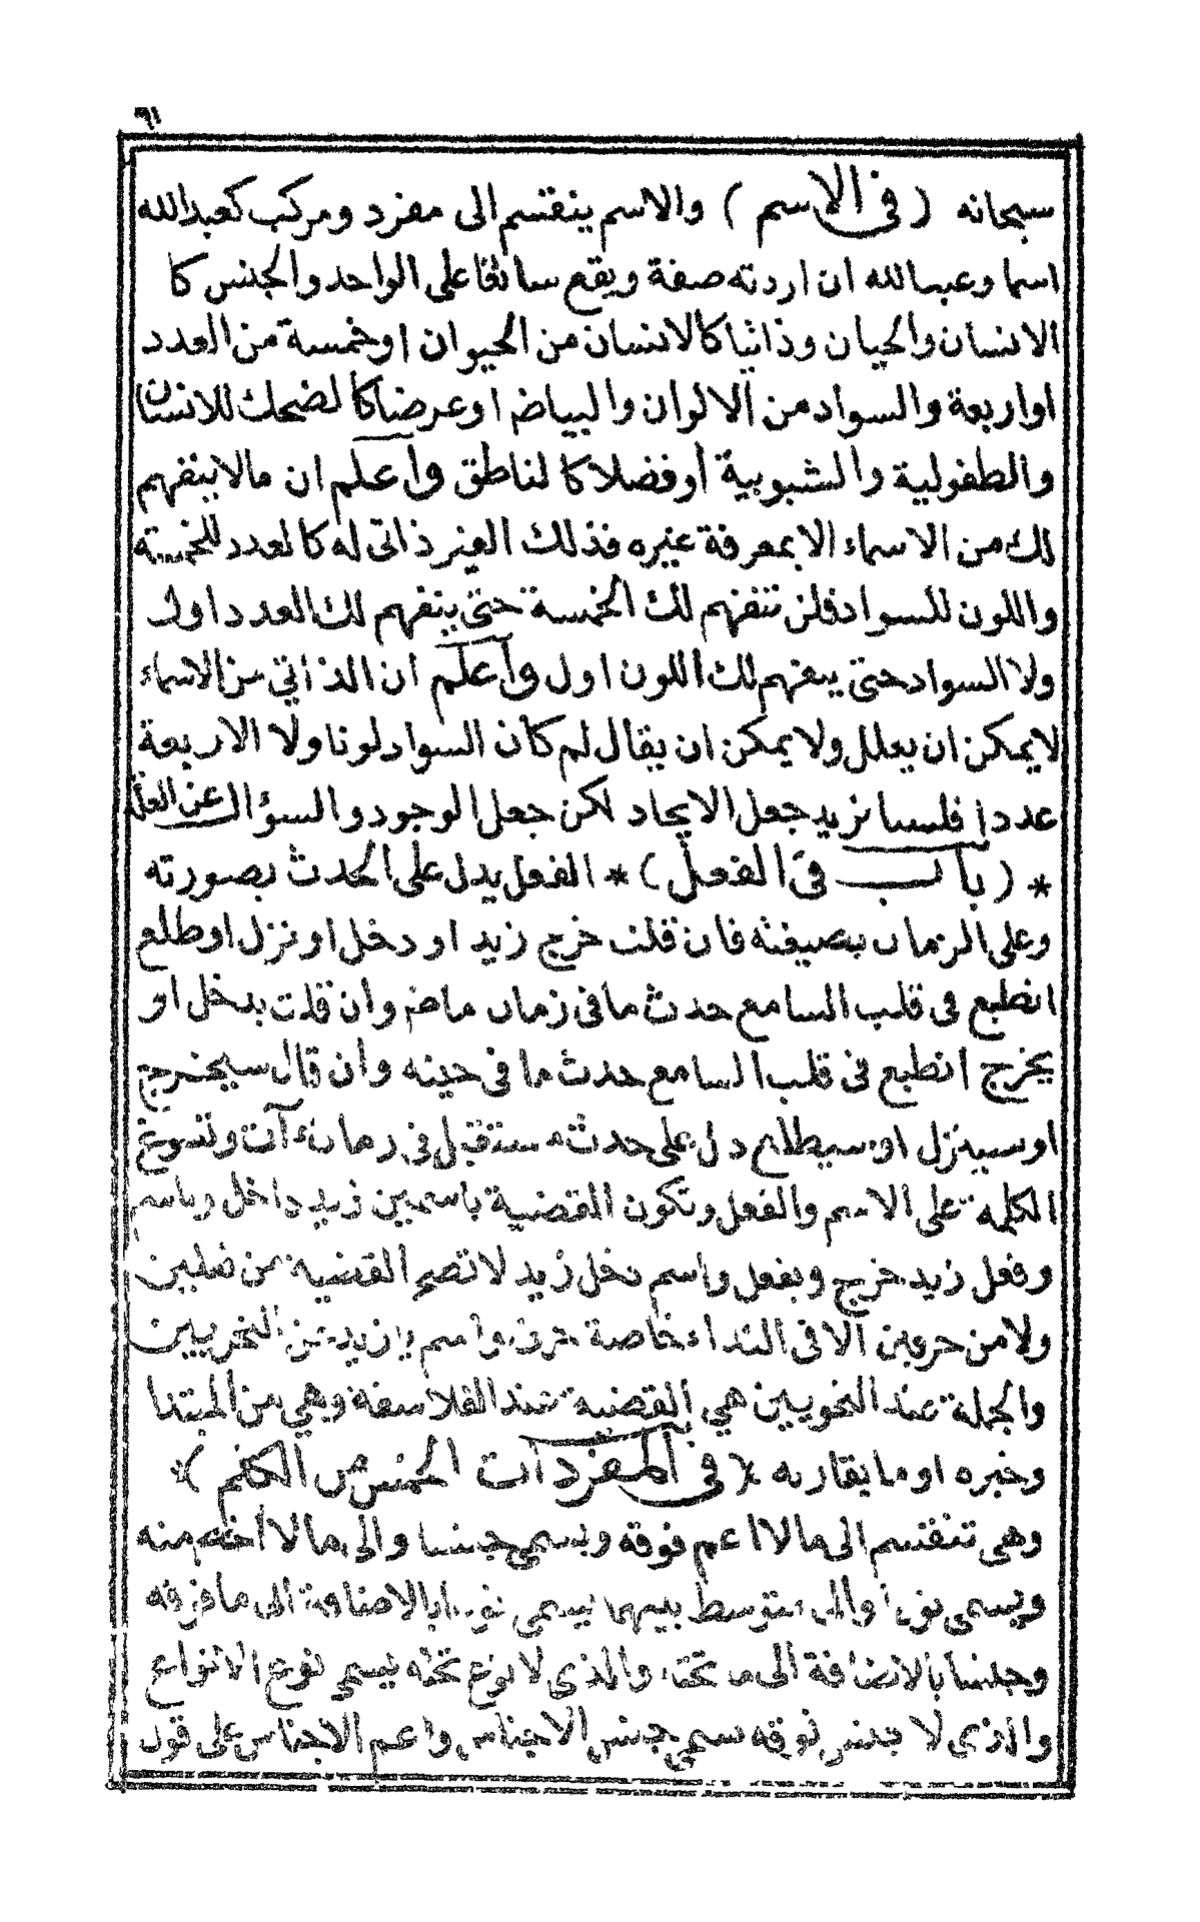 ٩١
سبحانه (في الاسم) والاسم ينقسم الى مفرد ومركب كعبدالله
اسما وعبدالله ان اردته صفة ويقع سائغا على الواحد والجنس كا
الانسان والحيان وذاتيا كالانسان من الحيوان اوخمسة من العدد
اواربعة والسواد من الالوان والبياض اوعرضا كا لضحك للانسان
والطفولية والشبوبية اوفضلا كا لناطق واعلم ان مالا ينفهم
لك من الاسماء الابمعرفة غيره فذلك الغير ذاتى له كا لعدد للخمسة
واللون للسواد فلن تنفهم لك الخمسة حتى ينفهم لك العدد اولا
ولا السواد حتى ينفهم لك اللون اول واعلم ان الذاتي من الاسماء
لايمكن ان يعلل ولا يمكن ان يقال لم كان السواد لونا ولا الاربعة
عددا فلسنا نريد جعل الايجاد لكن جعل الوجود والسؤال عن العلة
* (باب في الفعل) * الفعل يدل على الحدث بصورته
وعلى الزمان بصيغته فان قلت خرج زيد او دخل اونزل اوطلع
انطبع في قلب السامع حدث ما فى زمان ماض وان قلت يدخل او
يخرج انطبع في قلب السامع حدث ما في حينه وان قال سيخرج
اوسينزل اوسيطلع دل على حدث مستقبل في زمان آت وتسوغ
الكلمة على الاسم والفعل وتكون القضية باسمين زيد داخل وباسم
وفعل زيد خرج وبفعل واسم دخل زيد لا تصح القضية من فعلين
ولا من حرفين الا فى النداء خاصة حرف واسم يا زيد عن النحويين
والجملة عند النحويين هي القضية عند الفلاسفة وهي من المبتدا
وخبره او ما يقاربه * (في المفردات الخمس من الكلم) *
وهى تنقسم الى مالا اعم فوقه ويسمى جنسا والى مالا اخص منه
ويسمى نوعا والى متوسط بينهما يسمى نوعا بالاضافة الى ما فوقه
وجنسا بالاضافة الى ما تحته والذى لا نوع تحته يسمى نوع الانواع
والذى لا جنس فوقه يسمى جنس الاجناس واعم الاجناس على قول